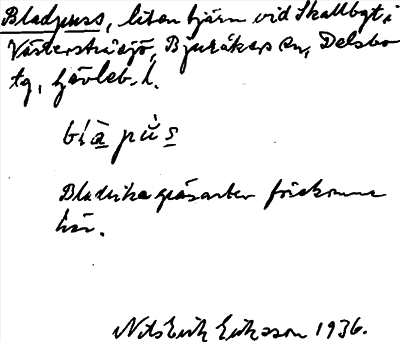 Bladpuss, liten tjärn vid Skallbgt i
Västerstråsjö, Bjuråkers sn, Delsbo
tg, Gävleb. l.
bla pu̇s
Bladrika gräsarter förekomma
här.
Nils Erik Eriksson 1936.